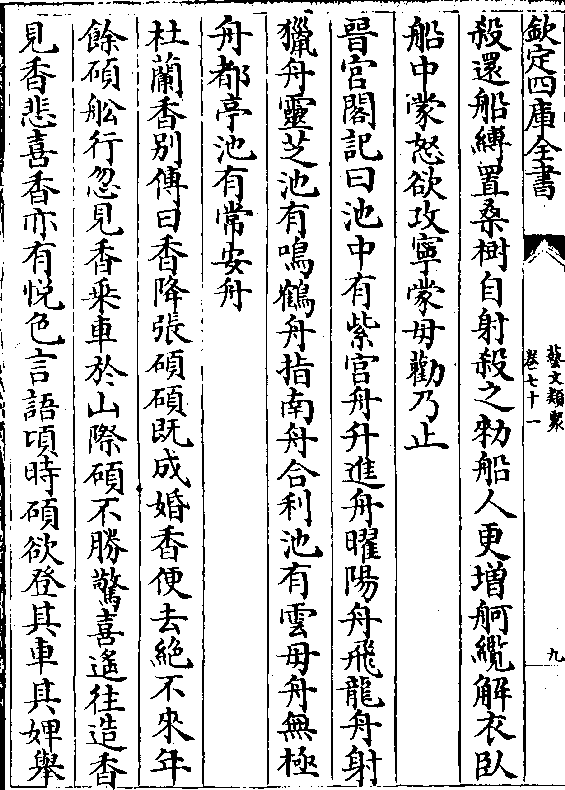 欽定四庫全書
藝文類聚
卷七十一
九
殺還船縛置桑樹自射殺之勑船人更増舸纜解衣臥
船中蒙怒欲攻寧蒙毋勸乃止
晉宮閣記曰池中有紫宫舟升進舟曜陽舟飛龍舟射
獵舟靈芝池有鳴鶴舟指南舟合利池有雲毋舟無極
舟都亭池有常安舟
杜蘭香别傳曰香降張碩碩既成婚香便去絶不來年
餘碩舩行忽見香乘車於山際碩不勝驚喜遙往造香
見香悲喜香亦有悅色言語頃時碩欲登其車其婢舉